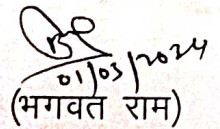 01/03/2024
(भगवत राम)